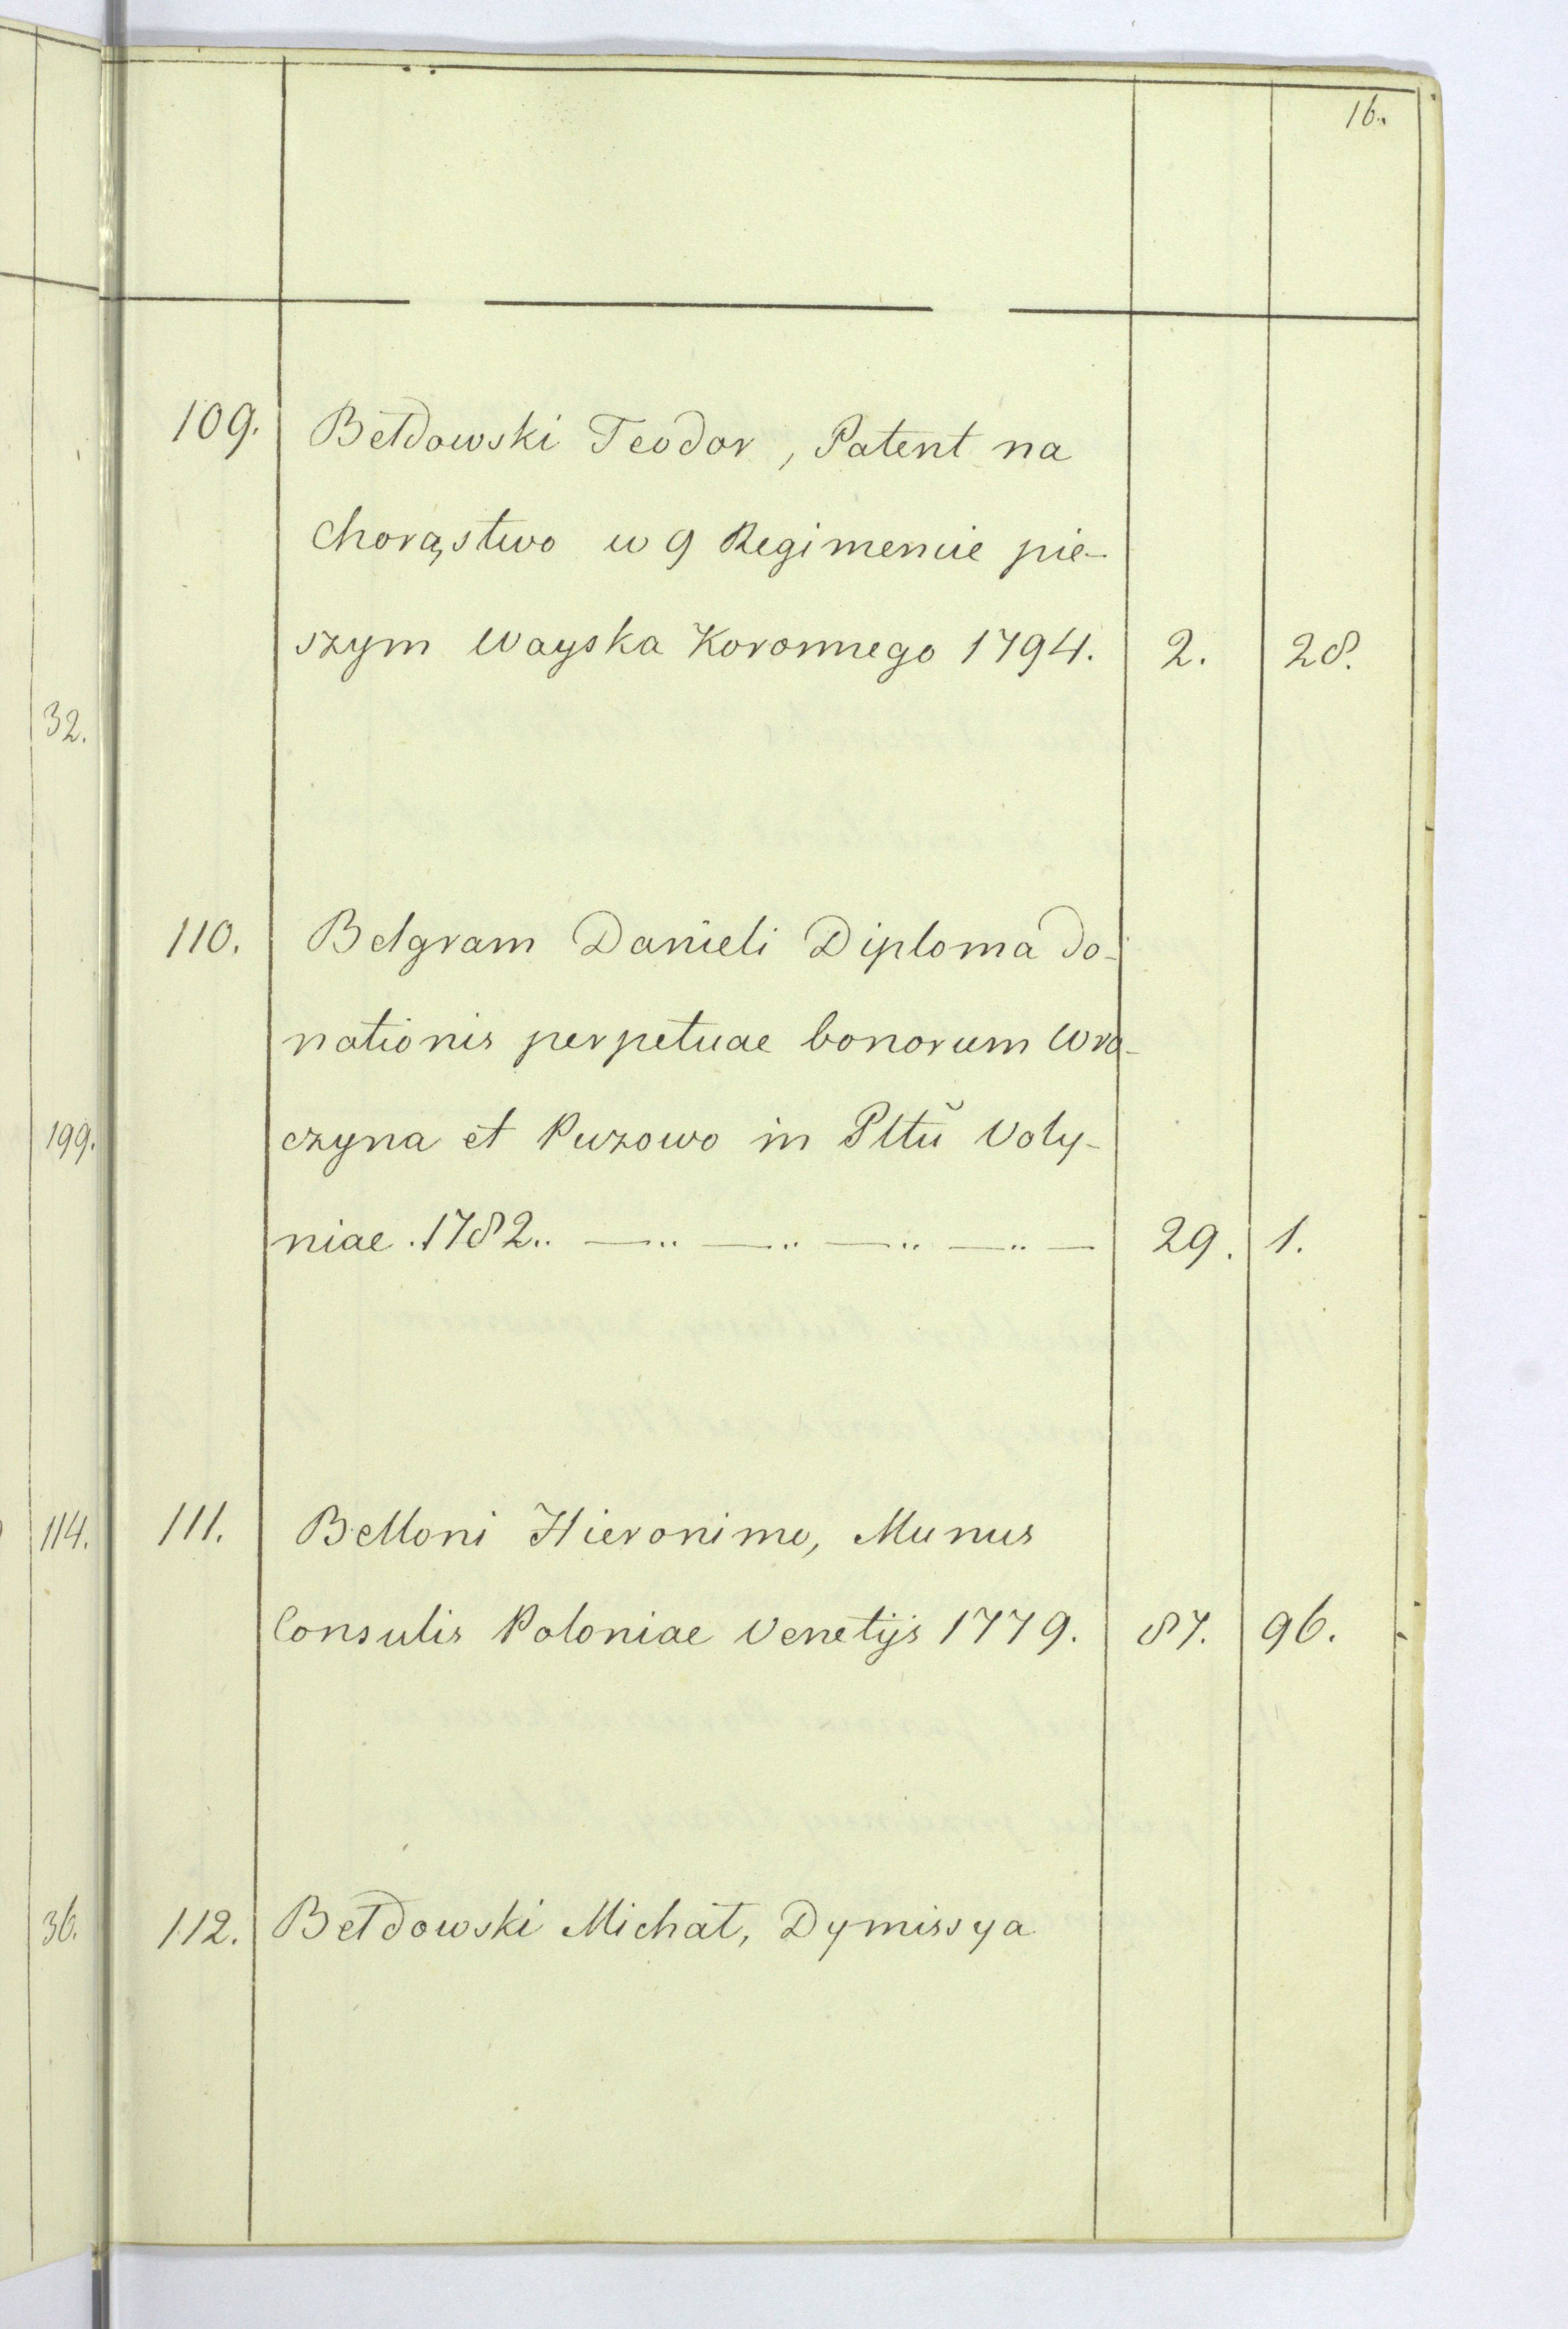 16.
109. Bełdowski Teodor, Patent na
chorąstwo w 9 Regimencie pie-
szym Wayska Koronnego 1794. 2. 28.
32.
110. Belgram Danieli Diploma do-
nationis perpetuae bonorum Wro-
czyna et Puzowo in Pltŭ Voly-
199.
niae. 1782.. —.. —.. —.. —.. — 29. 1.
114. 111. Belloni Hieronimo, Munus
Consulis Poloniae Venetijs 1779. 87. 96.
36. 112. Bełdowski Michał, Dymissya